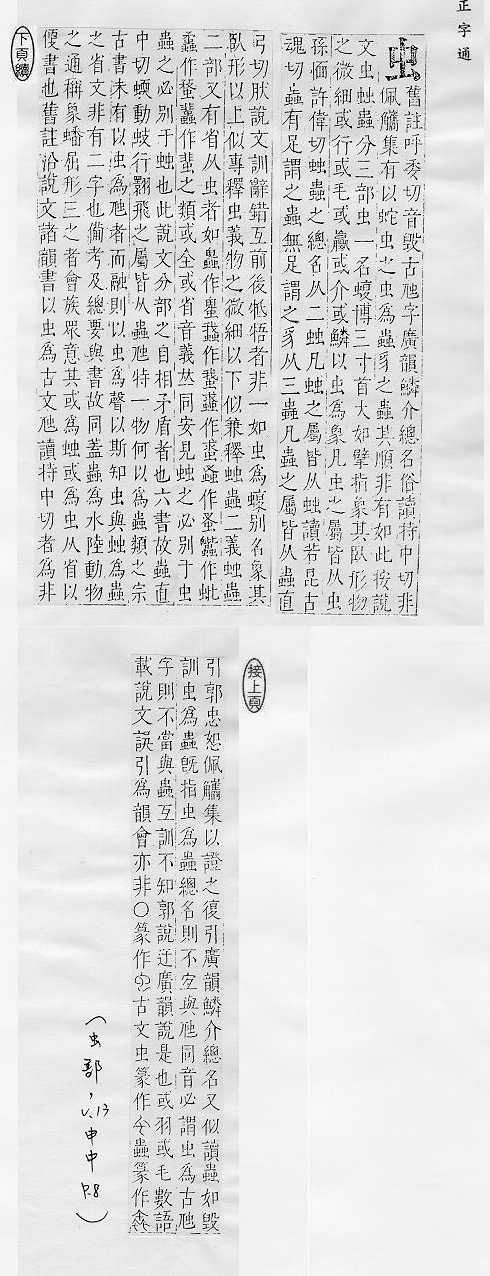 正字通
虫 舊註呼委切音毀古虺字廣韻鱗介總名俗讀持中切非
佩觿集有以蛇虫之虫為蟲豸之蟲其順非有如此按說
文虫䖵蟲分三部虫一名蝮博三寸首大如擘指象其臥形物
之微細或行或毛或蠃或介或鱗以虫為象凡虫之屬皆从虫
孫愐許偉切䖵蟲之總名从二䖵凡䖵之屬皆从䖵讀若昆古
魂切蟲有足謂之蟲無足謂之豸从三蟲凡蟲之屬皆从蟲直
弓切肰說文訓辭錯互前後牴牾者非一如虫為蝮別名象其
臥形以上似專釋虫義物之微細以下似兼釋䖵蟲二義䖵蟲
二部又有省从虫者如
之類或全或省音義𠀤同安見䖵之必別于虫
蟲之必別于䖵也此說文分部之自相矛盾者也六書故蟲直
中切蝡動蚑行翾飛之屬皆从蟲虺特一物何以為蟲類之宗
古書未有以虫為虺者而融則以虫為聲以斯知虫與䖵為蟲
之省文非有二字也備考及總要與書故同蓋蟲為水陸動物
之通稱象蟠屈形三之者會族眾意其或為䖵或為虫从省以
便書也舊註沿說文諸韻書以虫為古文虺讀持中切者為非
下頁續
接上頁
引郭忠恕佩觿集以證之復引廣韻鱗介總名又似讀蟲如毀
訓虫為蟲旣指虫為蟲總名則不宜與虺同音必謂虫為古虺
字則不當與蟲互訓不知郭說迂廣韻說是也或羽或毛數語
載說文誤引為韻會亦非○篆作古文虫篆作蟲篆作
(虫部，v.13申中 P.8)